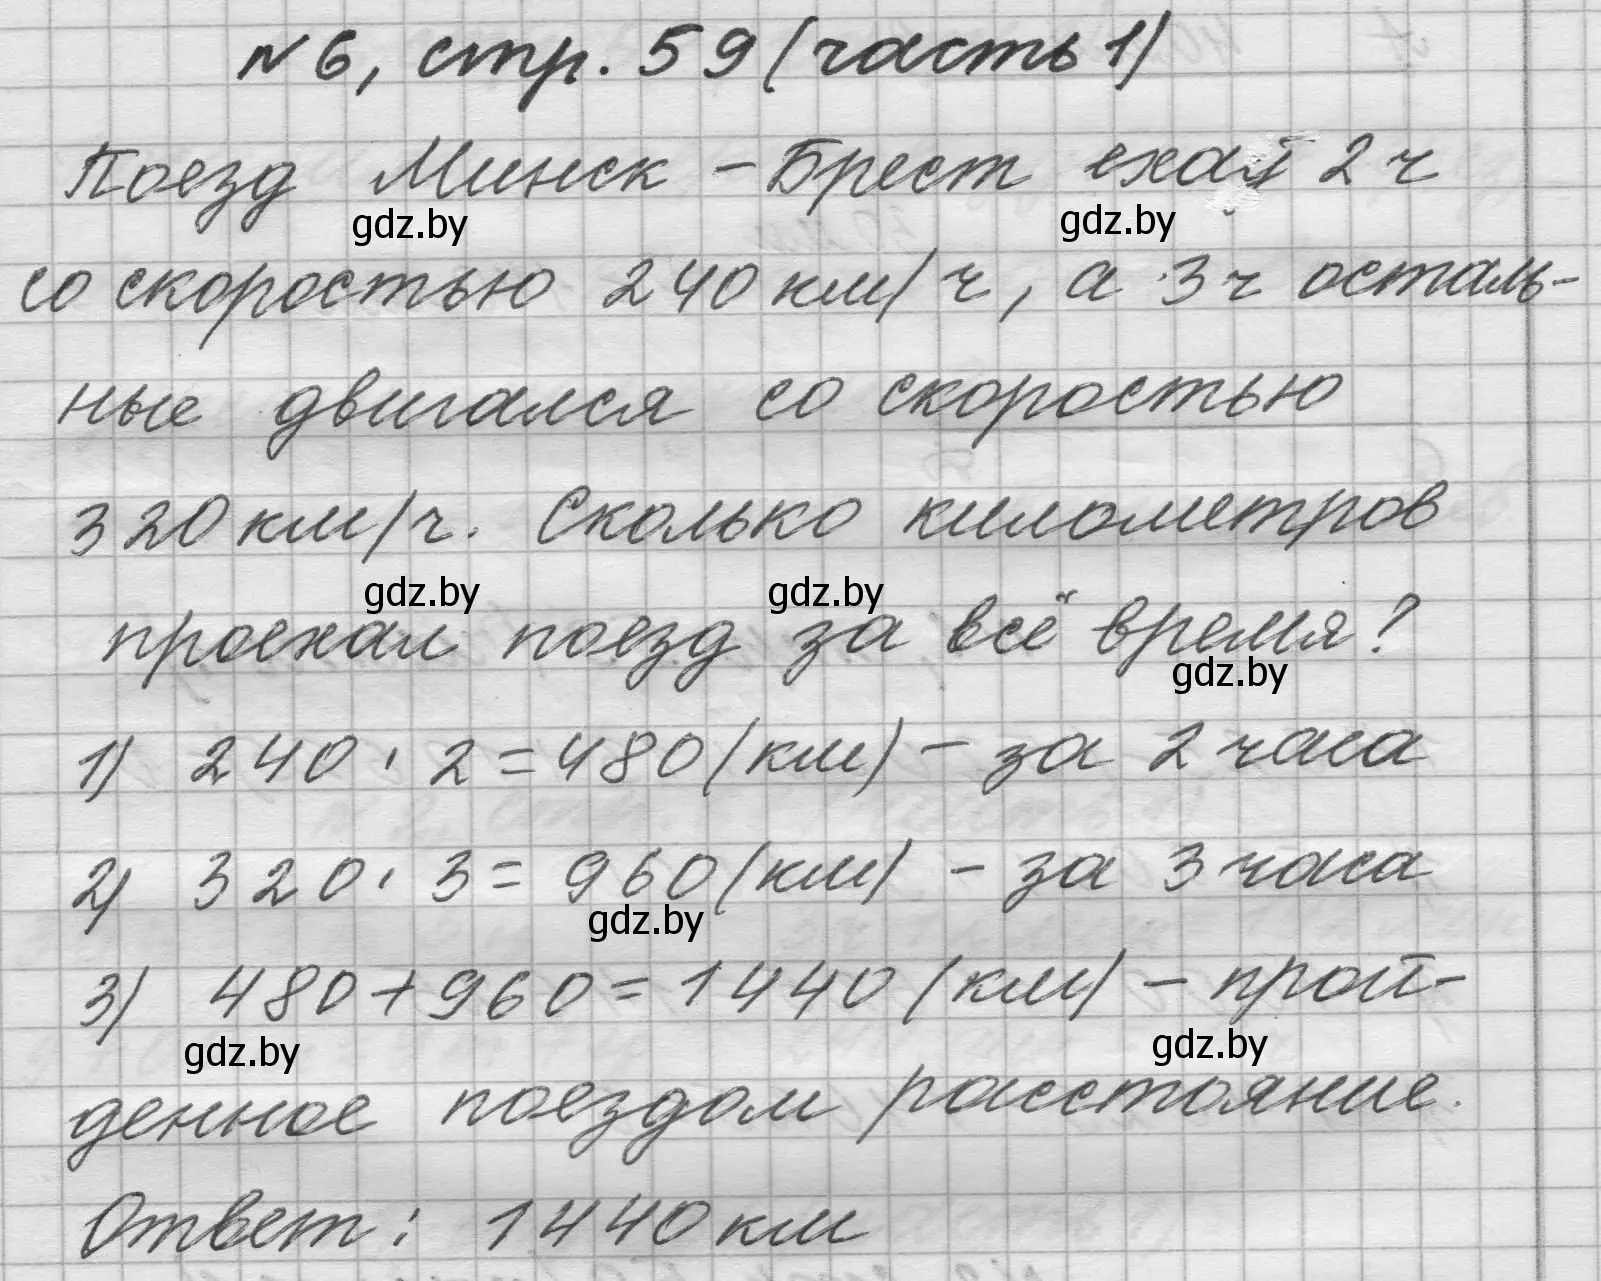 №6, стр. 59 (часть 1)
Поезд Минск - Брест ехал 2 ч
gdz.by gdz.by
со скоростью 240 км/ч, а 3 ч осталь-
ные двигался со скоростью
320 км/ч. Сколько километров
gdz.by gdz.by
проехал поезд за всё время?
gdz.by
1) 240 · 2 = 480 (км) - за 2 часа
2) 320 · 3 = 960 (км) - за 3 часа
gdz.by
3) 480 + 960 = 1440 (км) - прой-
gdz.by gdz.by
денное поездом расстояние.
Ответ: 1440 км